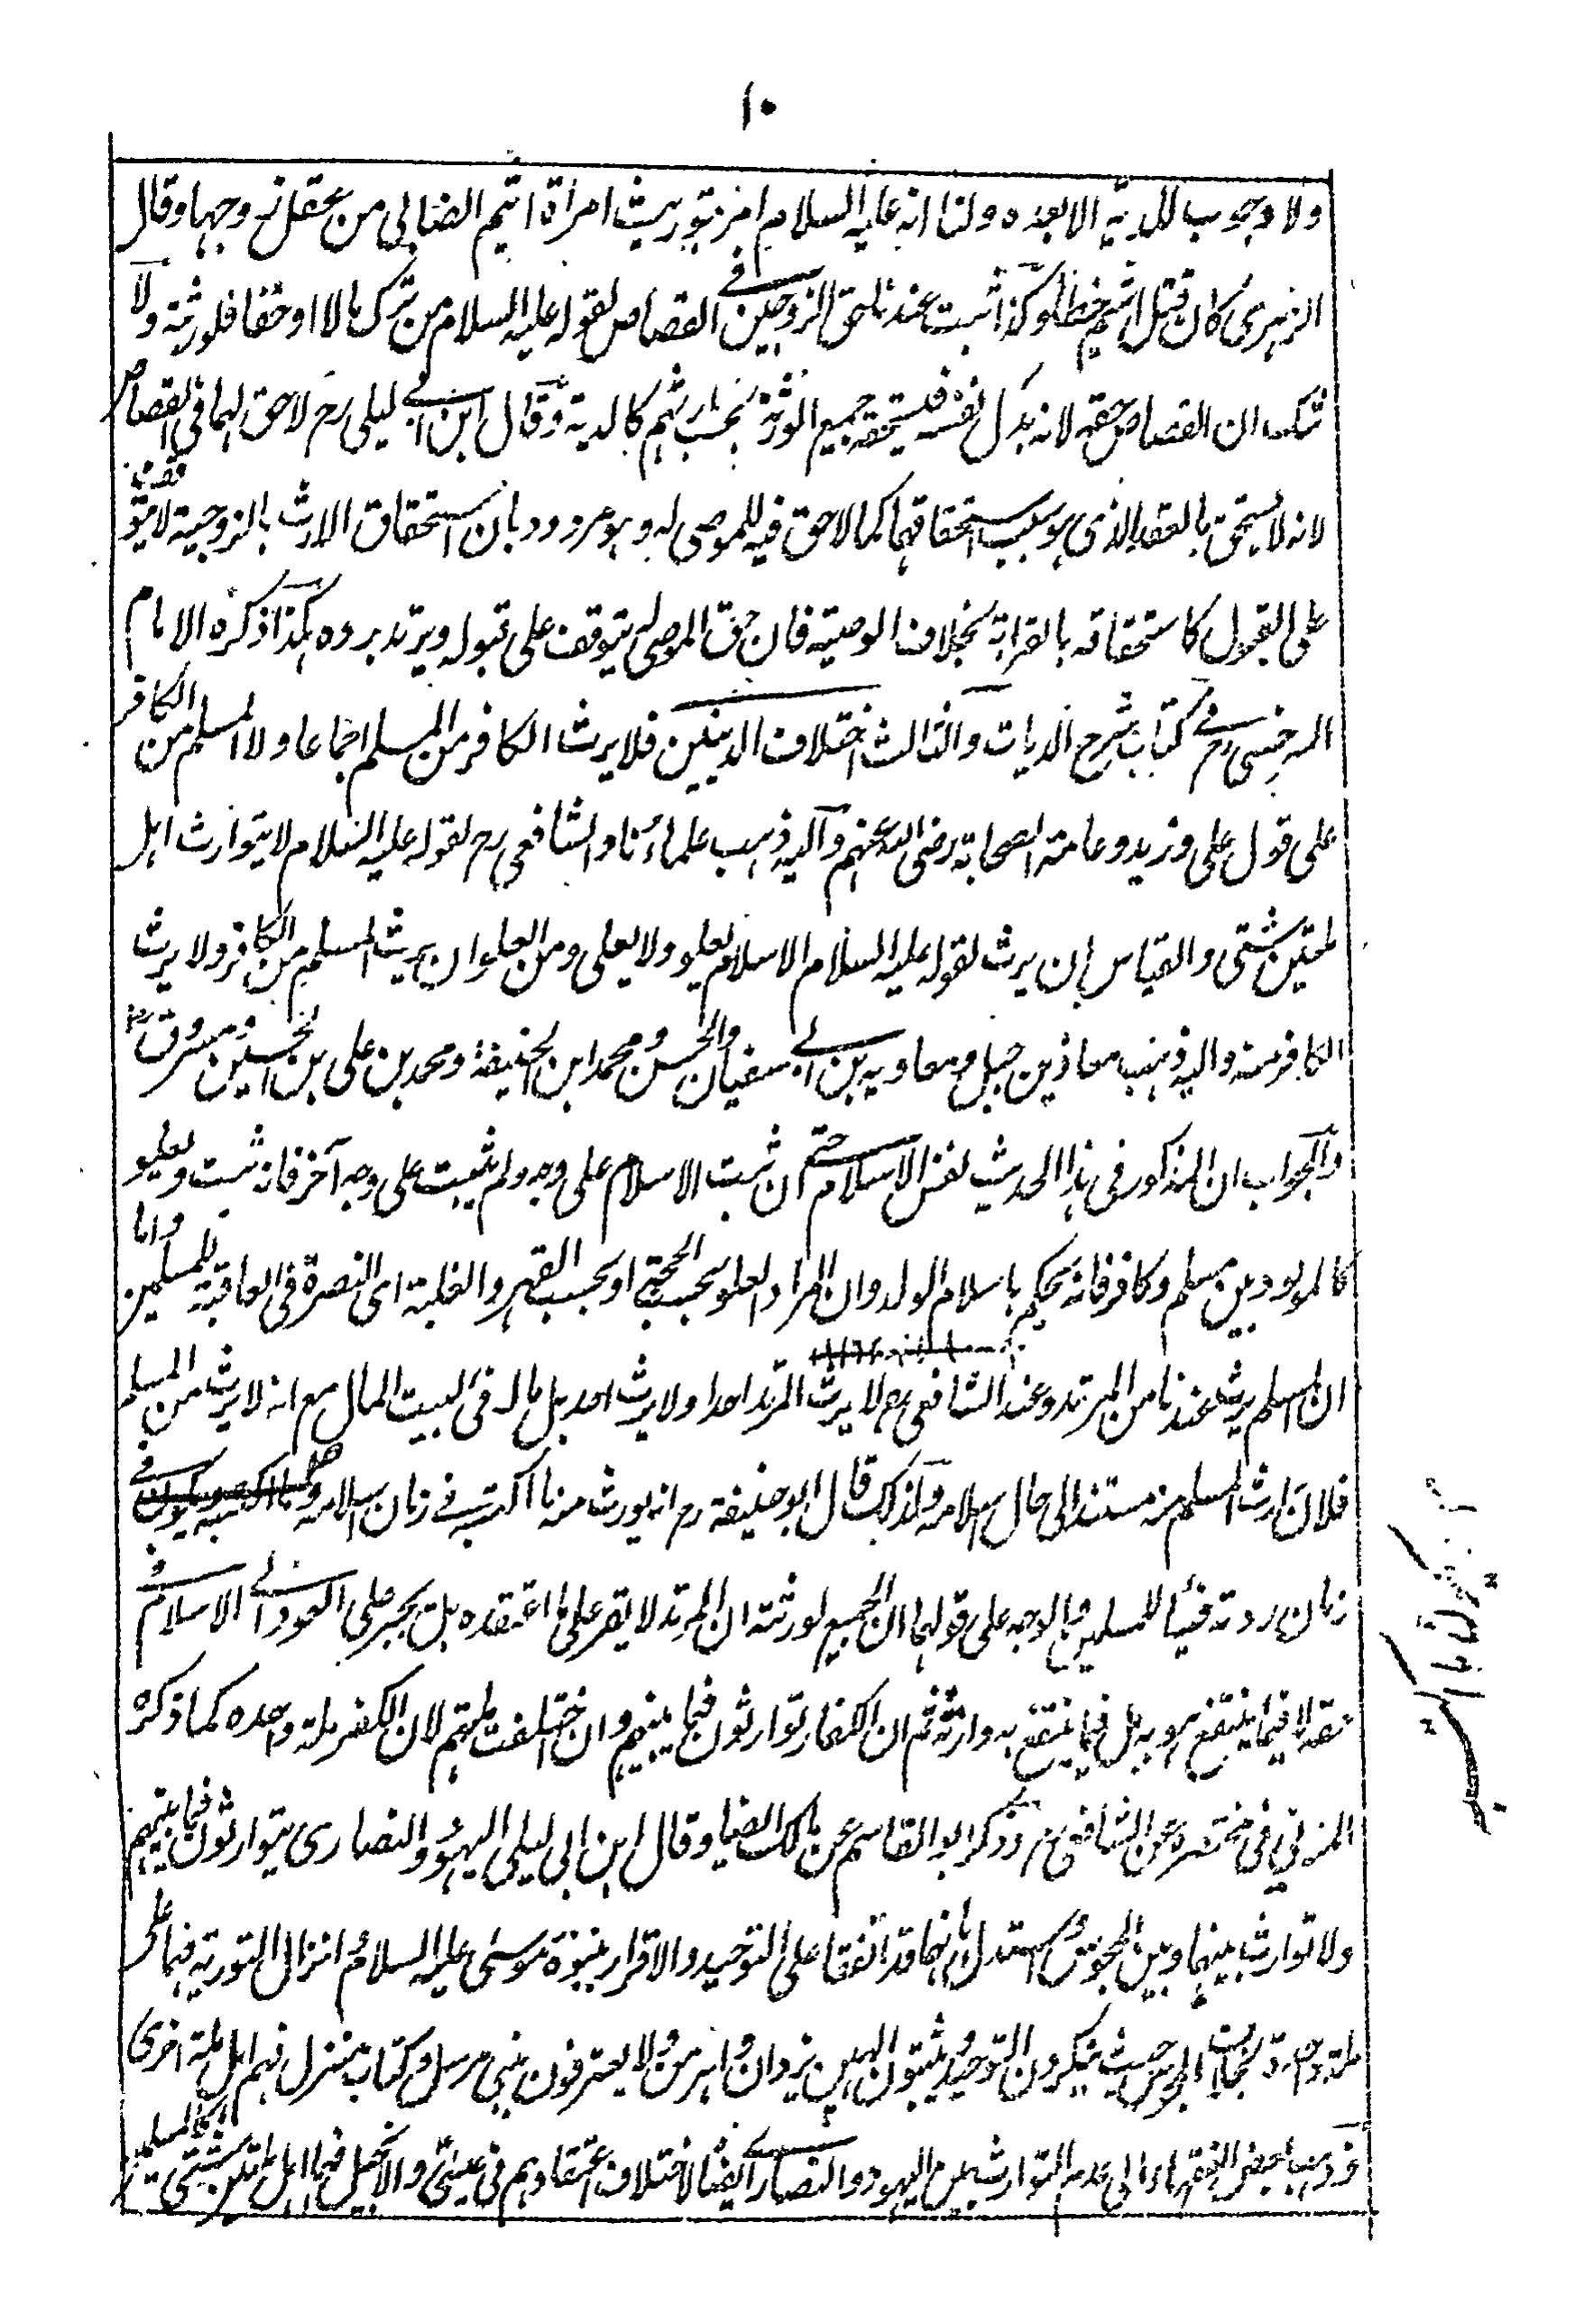 ١٠
ولا وجوب للدية الا بعده ولنا انه عليه السلام امر بتوريث امرأة اشيم الضبابي من عقل زوجها وقال
الزهرى كان قتل اشيم خطأ وكذا ثبت عندنا حق الزوجين في القصاص لقوله عليه السلام من ترك مالا او حقا فلورثته ولا
شك ان القصاص حقه لانه بدل نفسه فيستحقه جميع الورثة بحسب ارثهم كالدية وقال ابن ابي ليلى رح لا حق لهما في القصاص
لانه لا يستحق بالعقد الذى هو سبب استحقاقهما كما لا حق فيه للموصى له وهو مردود بان استحقاق الارث بالزوجية لا يتوقف
على القبول كاستحقاقه بالقرابة بخلاف الوصية فان حق الموصى له يتوقف على قبوله ويرتد برده هكذا ذكره الامام
السرخسى رح في كتاب شرح الديات والثالث اختلاف الدينين فلا يرث الكافر من المسلم اجماعا ولا المسلم من الكافر
على قول على وزيد وعامة الصحابة رضى الله عنهم واليه ذهب علماءنا والشافعى رح لقوله عليه السلام لا يتوارث اهل
ملتين شتى والقياس ان يرث لقوله عليه السلام الاسلام يعلو ولا يعلى ومن العلو ان يرث المسلم من الكافر ولا يرث
الكافر منه واليه ذهب معاذ بن جبل ومعاوية بن ابي سفيان والحسن ومحمد ابن الحنيفة ومحمد بن على بن الحسين ومسروق رح
والجواب ان المذكور في هذا الحديث نفس الاسلام حتى ان ثبت الاسلام على وجه ولم يثبت على وجه آخر فانه يثبت ويعلو
كالمولود بين مسلم وكافر فانه يحكم باسلام الولد وان المراد العلو بحسب الحجة او بحسب القهر والغلبة اى النصرة في العاقبة للمسلمين واما
ان المسلم يرث عندنا من المرتد وعند الشافعى رح لا يرث المرتد احدا ولا يرثه احد بل ماله فئ لبيت المال مع انه لا يرث من المسلم
فلان ارث المسلم منه مستند الى حال اسلامه ولذلك قال ابو حنيفة رح انه يورث منه ما اكتسبه في زمان اسلامه وما اكتسبه يكون في
زمان ردته فيئا للمسلمين والوجه على قولهما ان الجميع لورثته ان المرتد لا يقر على ما اعتقده بل يجبر على العود الى الاسلام و
حقه لا فيما ينتفع هو به بل فيما ينتفع به وارثه ثم ان الكفار يتوارثون فيما بينهم وان اختلفت ملتهم لان الكفر ملة واحدة كما ذكره
المزني في مختصره عن الشافعى رح وذكر ابو القاسم عن مالك ايضا وقال ابن ابى ليلى اليهود والنصارى يتوارثون فيما بينهم
ولا توارث بينهما وبين المجوس واستدل بانهما قد اتفقا على التوحيد والاقرار بنبوة موسى عليه السلام وانزال التورية فهما على
ملة واحدة بخلاف المجوس حيث ينكرون التوحيد ويثبتون الهين يزدان واهرمن ولا يعترفون بنبي مرسل وكتاب منزل فهم اهل ملة اخرى
وذهب بعض الفقهاء الى عدم التوارث بين اليهود والنصارى ايضا لاختلاف اعتقادهم في عيسى والانجيل فهما اهل ملتين شتى كالمسلمين